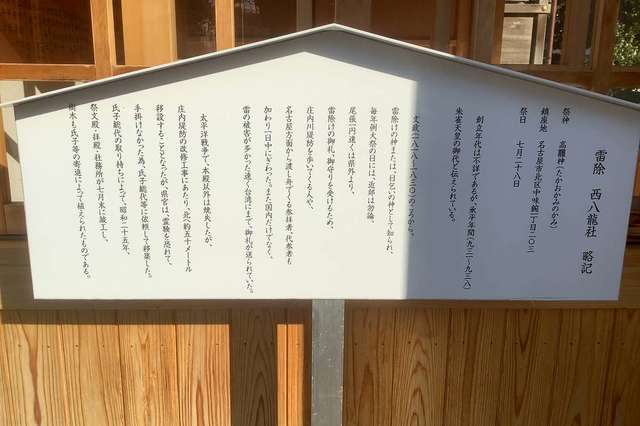 雷除 西八龍社 略記
祭神 高龗神(たかおかみのかみ)
鎮座地 名古屋市北区中味鋺一丁目二〇三
祭日 七月二十八日
創立年代は不詳であるが、承平年間(九三一〜九三八)
朱雀天皇の御代と伝えられている。
文政(一八一八〜一八三〇)のころから、
雷除けの神または、「日乞い」の神として知られ、
毎年例大祭の日には、近郷は勿論、
尾張一円遠くは県外より、
雷除けの御札、御守りを受けるため、
庄内川堤防を歩いてくる人や、
名古屋方面から渡し舟でくる参拝者、代参者も
加わり一日中にぎわった。また国内だけでなく、
雷の被害が多かった遠く台湾にまで、御札が送られていた。
太平洋戦争で、本殿以外は焼失したが、
庄内堤防の改修工事にあたり、北へ約五十メートル
移設することとなったが、県官は、霊験を恐れて、
手掛けなかった為、氏子総代等に依頼して移築した。
氏子総代の取り持ちによって、昭和二十五年、
祭文殿・拝殿・社務所が七月末に竣工し、
樹木も氏子等の寄進によって植えられたものである。